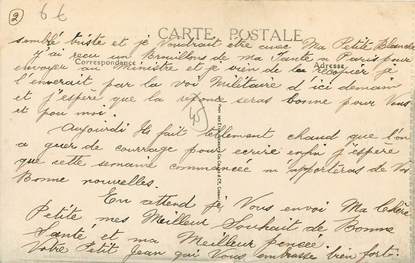 2
6 t
CARTE POSTALE
Correspondance
Adresse
semble triste et je Voudrait etre avec Ma Petite Blanche
j'ai recu un Brouillons de ma Tante a Paris pour
envoyer au Ministre et je vien de le recopier je
l'enverait par la voi Militaire d'ici demain
et j'espére que la reponse seras bonne pour Vous
et pou moi.
Aujourdi Ils fait tellement chaud que l'on
a guer de courrage pour ecrire enfin j'espère
que cette semaine commancée m'apporteras de Vos
Bonne nouvelles.
En attend je Vous envoi Ma Chère
Petite mes Meilleur Souhait de Bonne
Santé et ma Meilleur pensée.
Votre Petit Jean qui Vous embrasse bien fort.